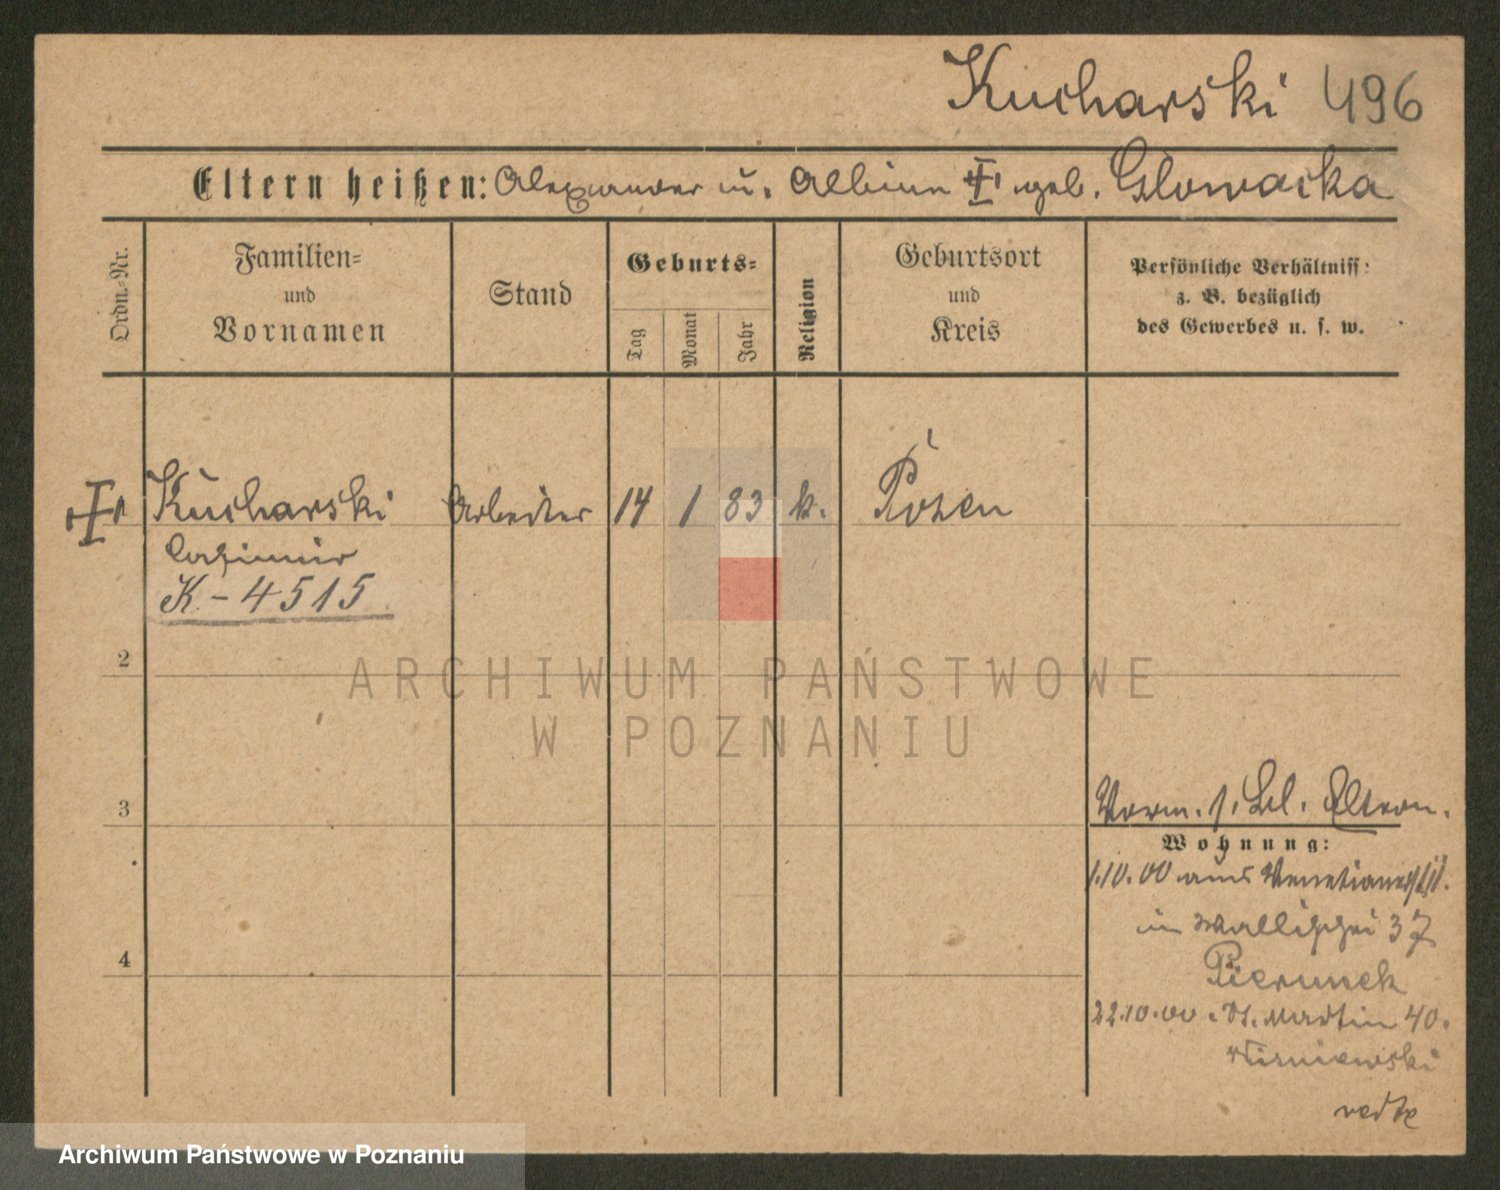 Kucharski 496
Eltern heißen: Alexander u. Albina geb. Glowacka
Ordn.-Nr.
Familien-
und
Vornamen
Stand
Geburts-
Tag
Monat
Jahr
Religion
Geburtsort
und
Kreis
Persönliche Verhältniss:
z. B. bezüglich
des Gewerbes u. s. w.
Kucharski Arbeiter 14 1 83 k. Posen
Casimir
K.-4515
2
3
4
Vorm. s. Bl. Eltern.
Wohnung:
1.10.00 aus Venetianerstr.
in Wallischei 37
Pierunek
22.10.00. St. Martin 40.
Wisniewski
ARCHIWUM PAŃSTWOWE
W POZNANIU
Archiwum Państwowe w Poznaniu